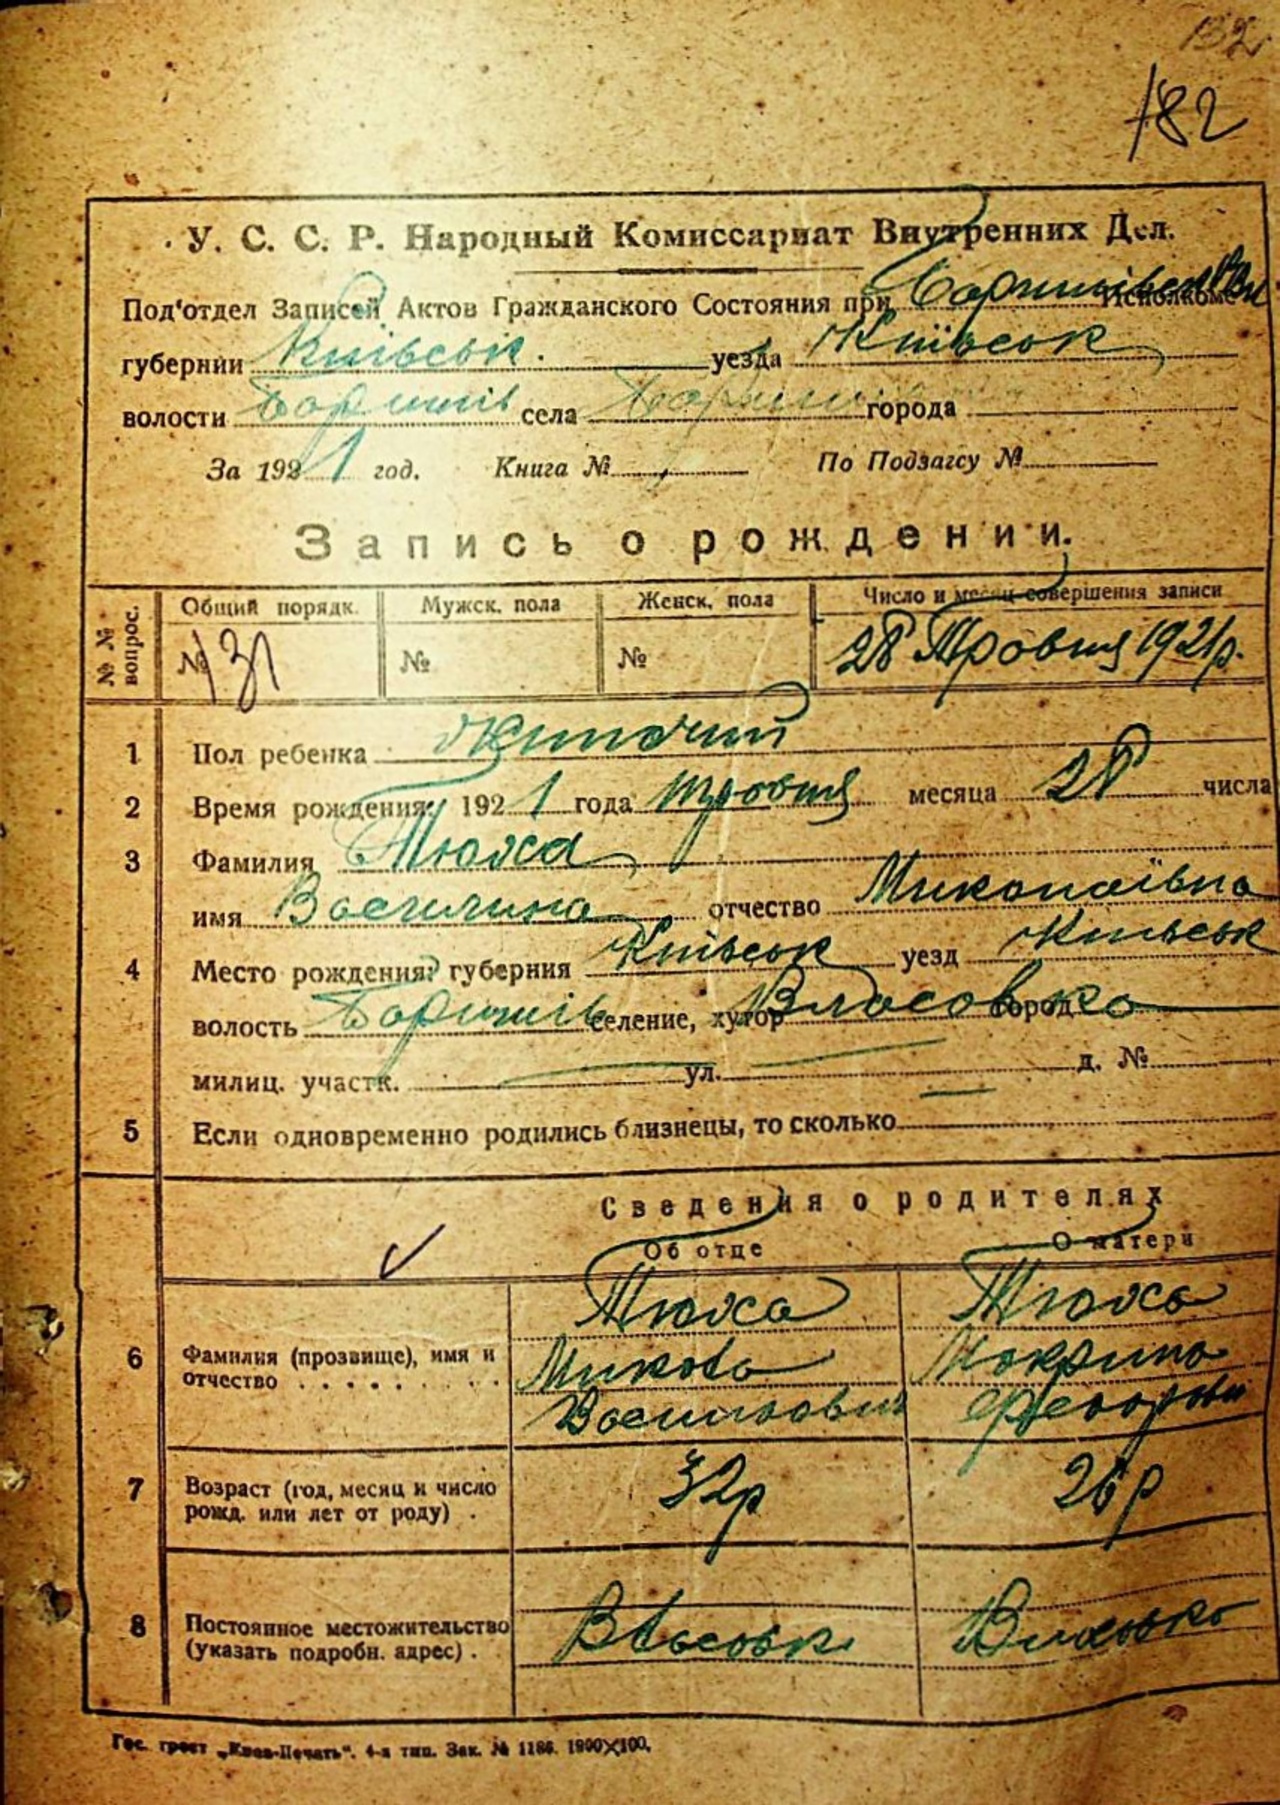 132
182
У. С. С. Р. Народный Комиссариат Внутренних Дел.
Под'отдел Записей Актов Гражданского Состояния при Исполкоме
губернии Київськ. уезда Київськ
волости Боришпіль села города
За 1921 год. Книга № По Подзагсу №
Запись о рождении.
№ № вопрос. Общий порядк. Мужск. пола Женск. пола Число и месяц совершения записи
№ 131 № № 28 Травня 1921р.
1 Пол ребенка Жіночий
2 Время рождения: 1921 года травня месяца 28 числа
3 Фамилия Тюха
имя Василина отчество Миколаївна
4 Место рождения: губерния Київськ уезд Київськ
волость селение, хутор Власовка город
милиц. участк. ул. д. №
5 Если одновременно родились близнецы, то сколько
Сведения о родителях
Об отце О матери
Тюха Тюха
6 Фамилия (прозвище), имя и Микола Мокрина
отчество Федоровн
7 Возраст (год, месяц и число 32р 26р
рожд. или лет от роду)
8 Постоянное местожительство Власовк Власовка
(указать подробн. адрес)
Гос. трест „Киев-Печать“. 4-я тип. Зак. № 1186. 1900×100.